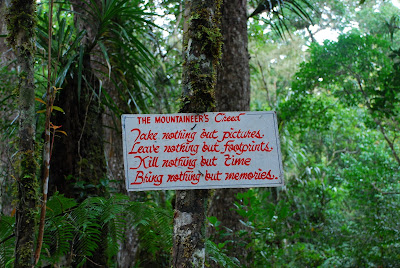 THE MOUNTAINEER'S Creed
Take nothing but pictures.
Leave nothing but footprints.
Kill nothing but time
Bring nothing but memories.